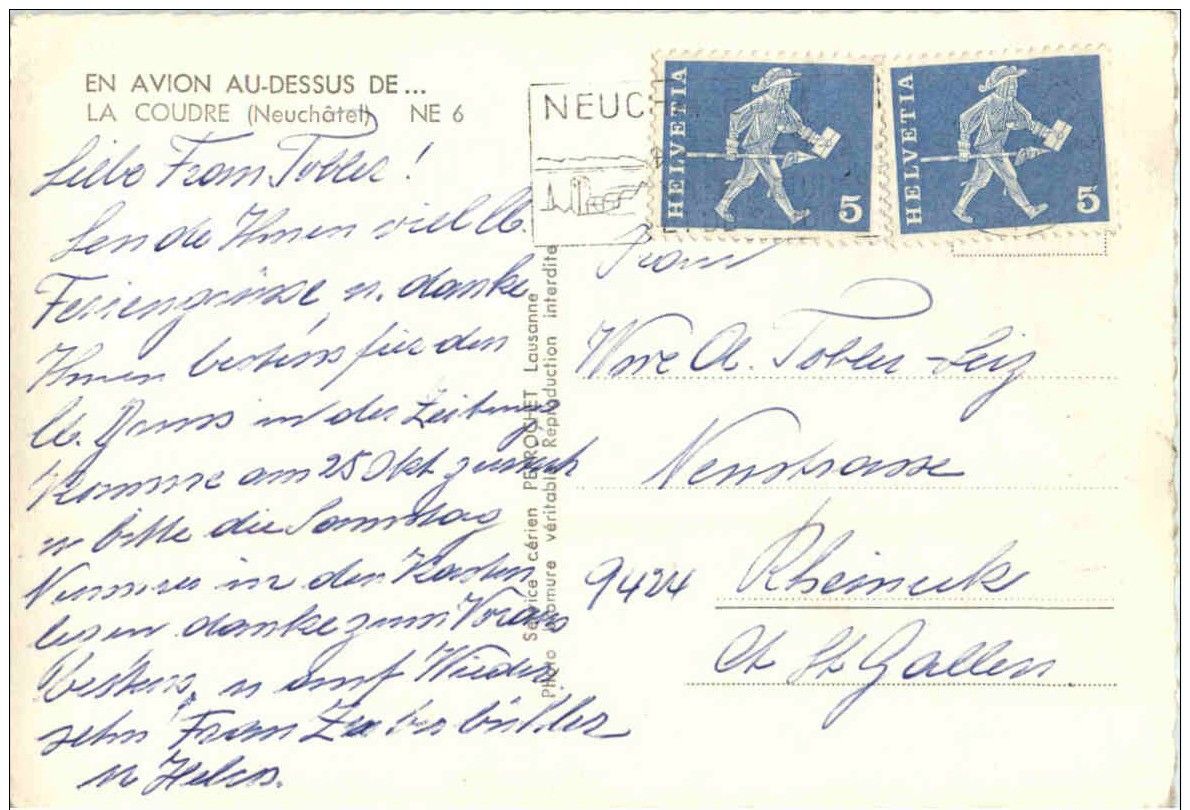 EN AVION AU-DESSUS DE...
LA COUDRE (Neuchâtel) NE 6
Liebe Frau Tobler!
Sende Ihnen viel lb.
Feriengrüsse, u. danke
Ihnen bestens für den
lb. Gruss in der Zeitung
Komme am 25 Okt zurück
u bitte die Samstag
Nummer in den Kasten
legen danke zum Voraus
bestens, u auf Wieder
sehn Frau
u
Photo Service cérien PERROCHET Lausanne
véritable Reproduction interdite
NEUCH
HELVETIA 5
HELVETIA 5
Frau
Wwe A. Tobler-
Neustrasse
9424 Rheineck
Ct St Gallen